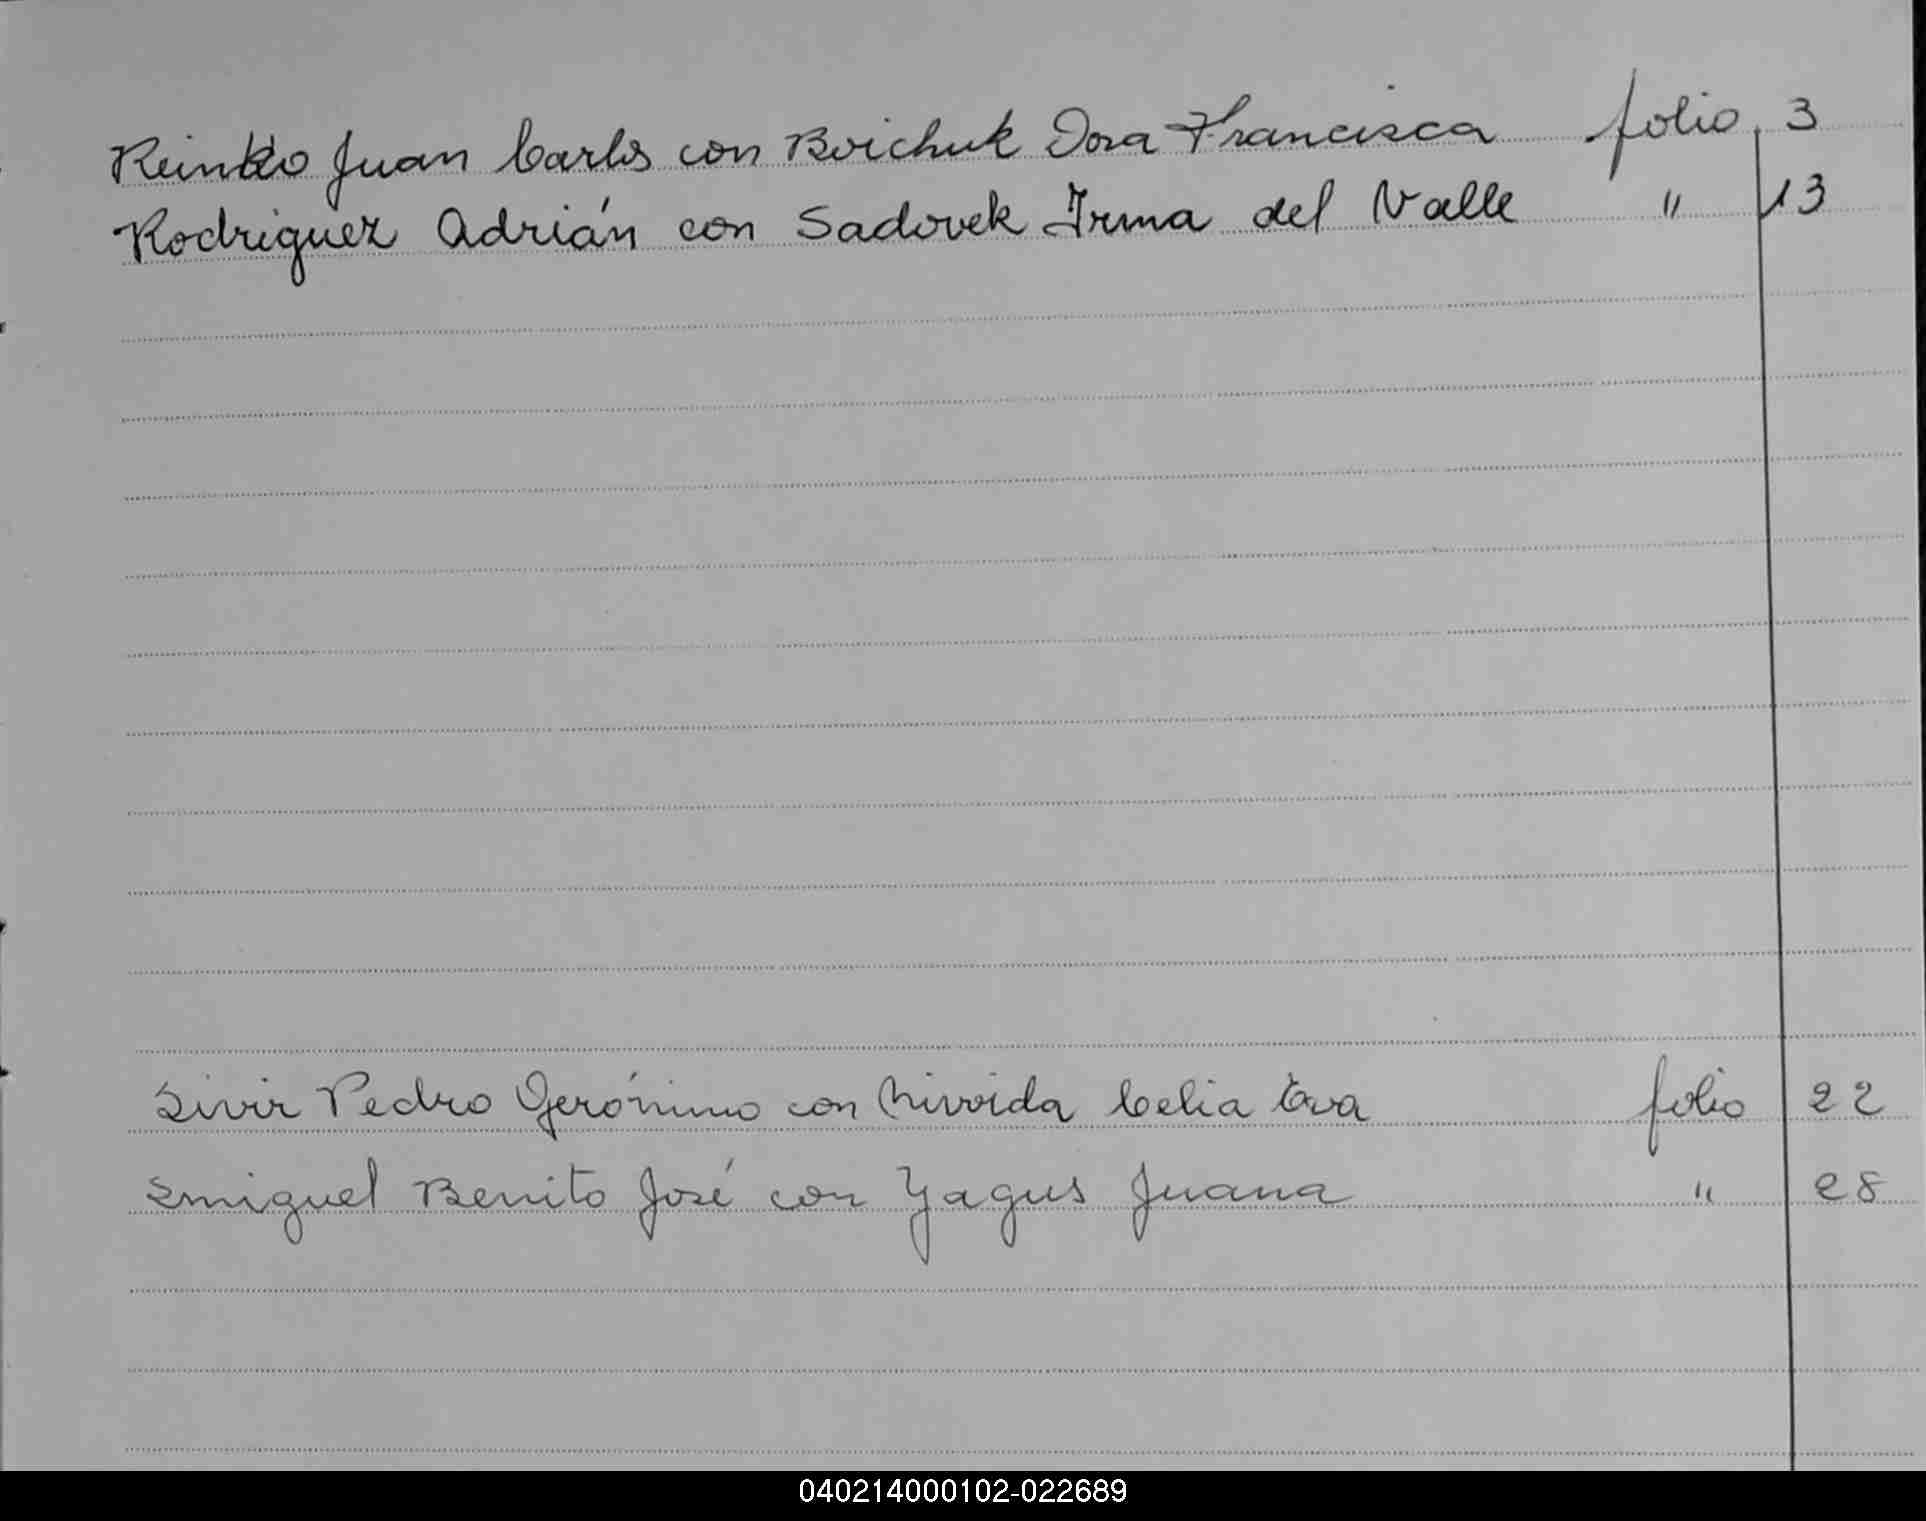 Reinko Juan Carlos con Boichuk Dora Francisca folio 3
Rodriguez Adrián con Sadovek Irma del Valle " 13
Sivir Pedro Gerónimo con Celia Eva folio 22
Smiguel Benito José con Yagus Juana " 28
040214000102-022689